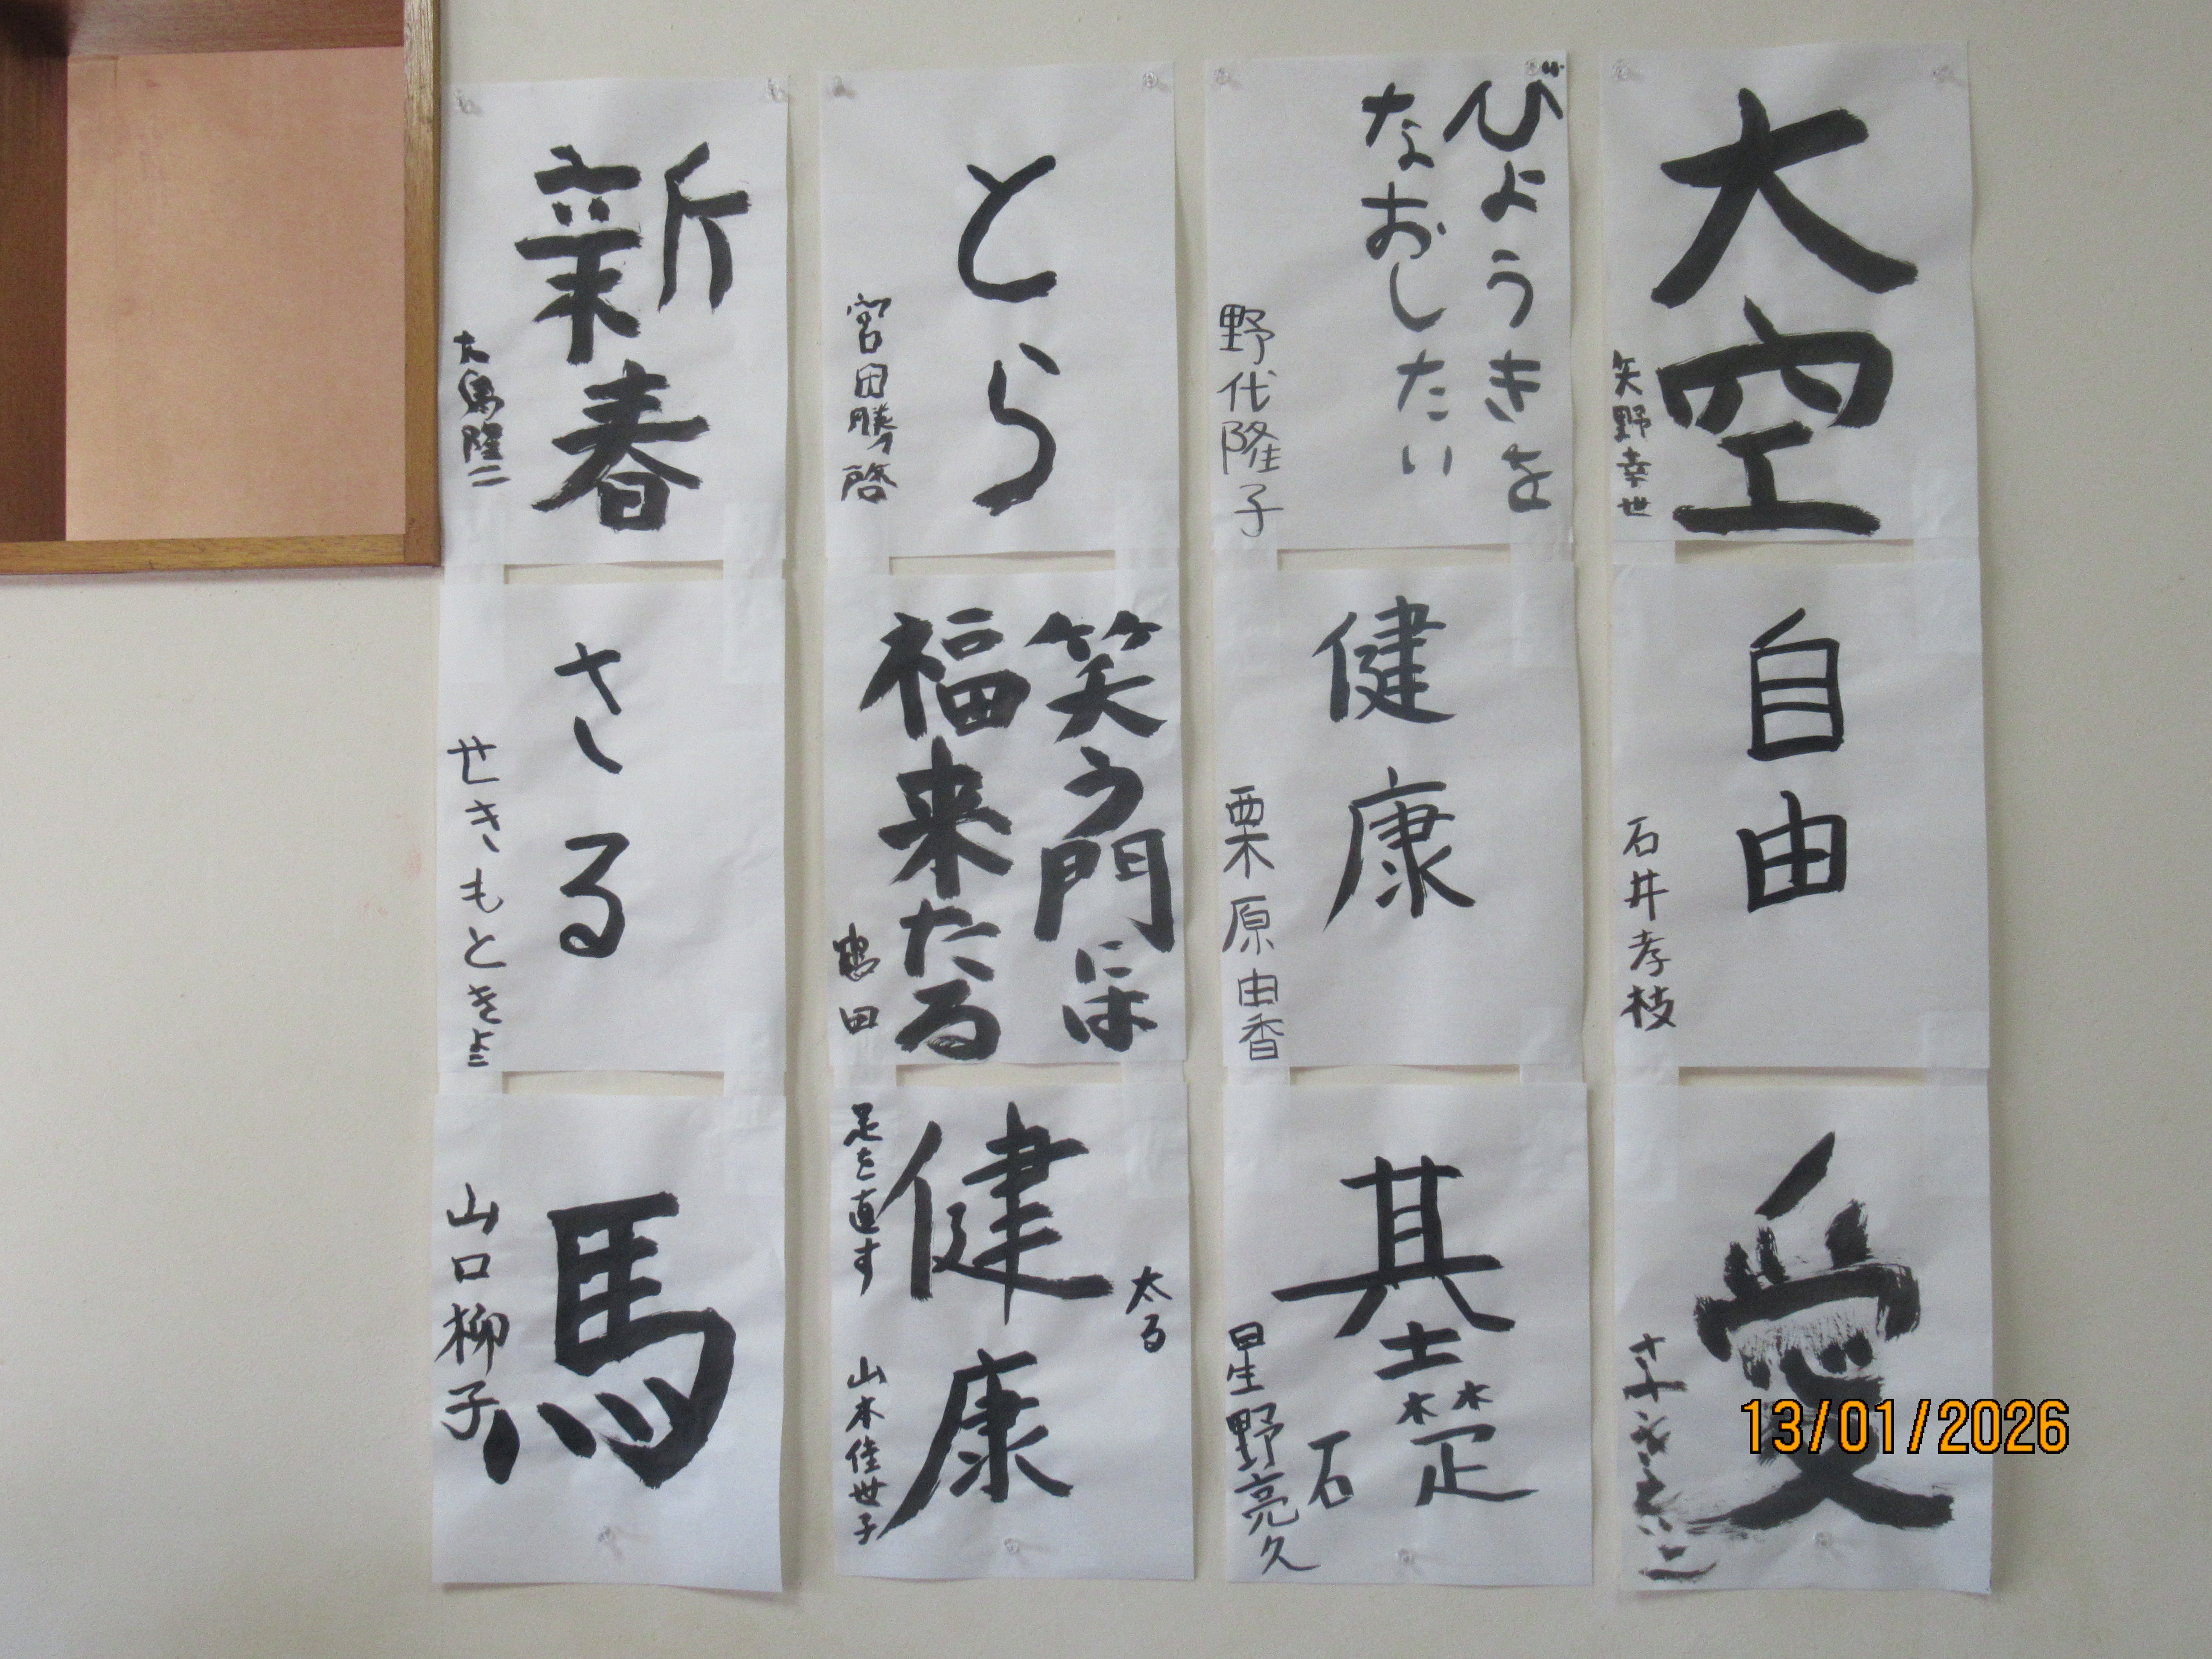 大空
矢野幸世
自由
石井孝枝
愛
びようきを
なおしたい
野代隆子
健康
栗原由香
基礎
星野亮久
とら
宮田勝啓
笑う門には
福来たる
田
太る
健康
足を直す
山本佳世子
新春
大島隆二
さる
せきもときよ
馬
山口柳子
13/01/2026